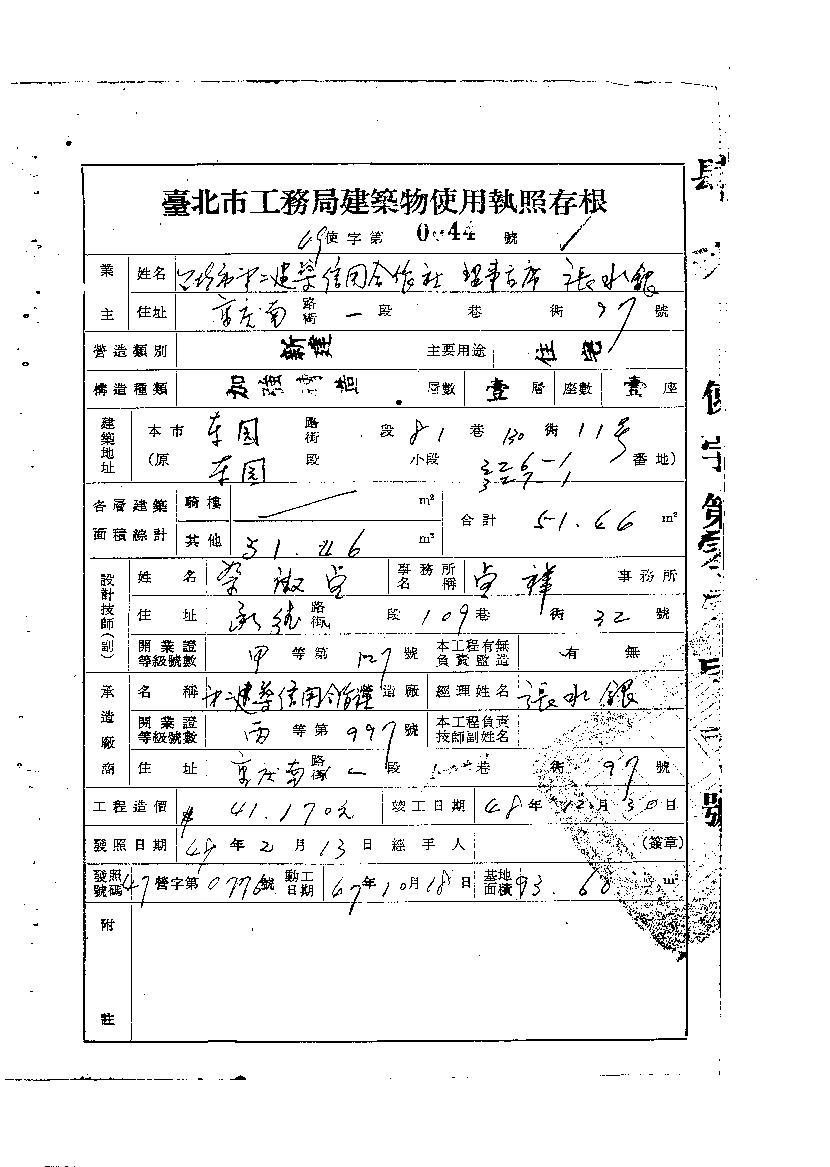 臺北市工務局建築物使用執照存根
49使字第 0044 號
業主 姓名 建築信用合作社 理事主席 張水銀
住址 重慶南 路街 一段 巷 衖 97 號
營造類別 新建 主要用途 住宅
構造種類 加強磚造 層數 壹層 座數 壹座
建築地址 本市 東園 路街 段 81 巷 130 衖 11號
(原 東園 段 小段 326-1 327-1 番地)
各層建築面積總計 騎樓 m² 合計 51.46 m²
其他 51.46 m²
設計技師(副) 姓名 事務所名稱 事務所
住址 路街 段 109 巷 衖 32 號
開業證等級號數 甲 等第 127 號 本工程有無負責監造 有 無
承造廠商 名稱 建築信用合作 造廠 經理姓名 張水銀
開業證等級號數 丙 等第 997 號 本工程負責技師副姓名
住址 重慶南 路街 一段 巷 衖 97 號
工程造價 41.170元 竣工日期 48年12月30日
發照日期 49年2月13日 經手人 (簽章)
發照號碼 47營字第0776號 動工日期 47年10月18日 基地面積 93.60 m²
附註
使字第
號